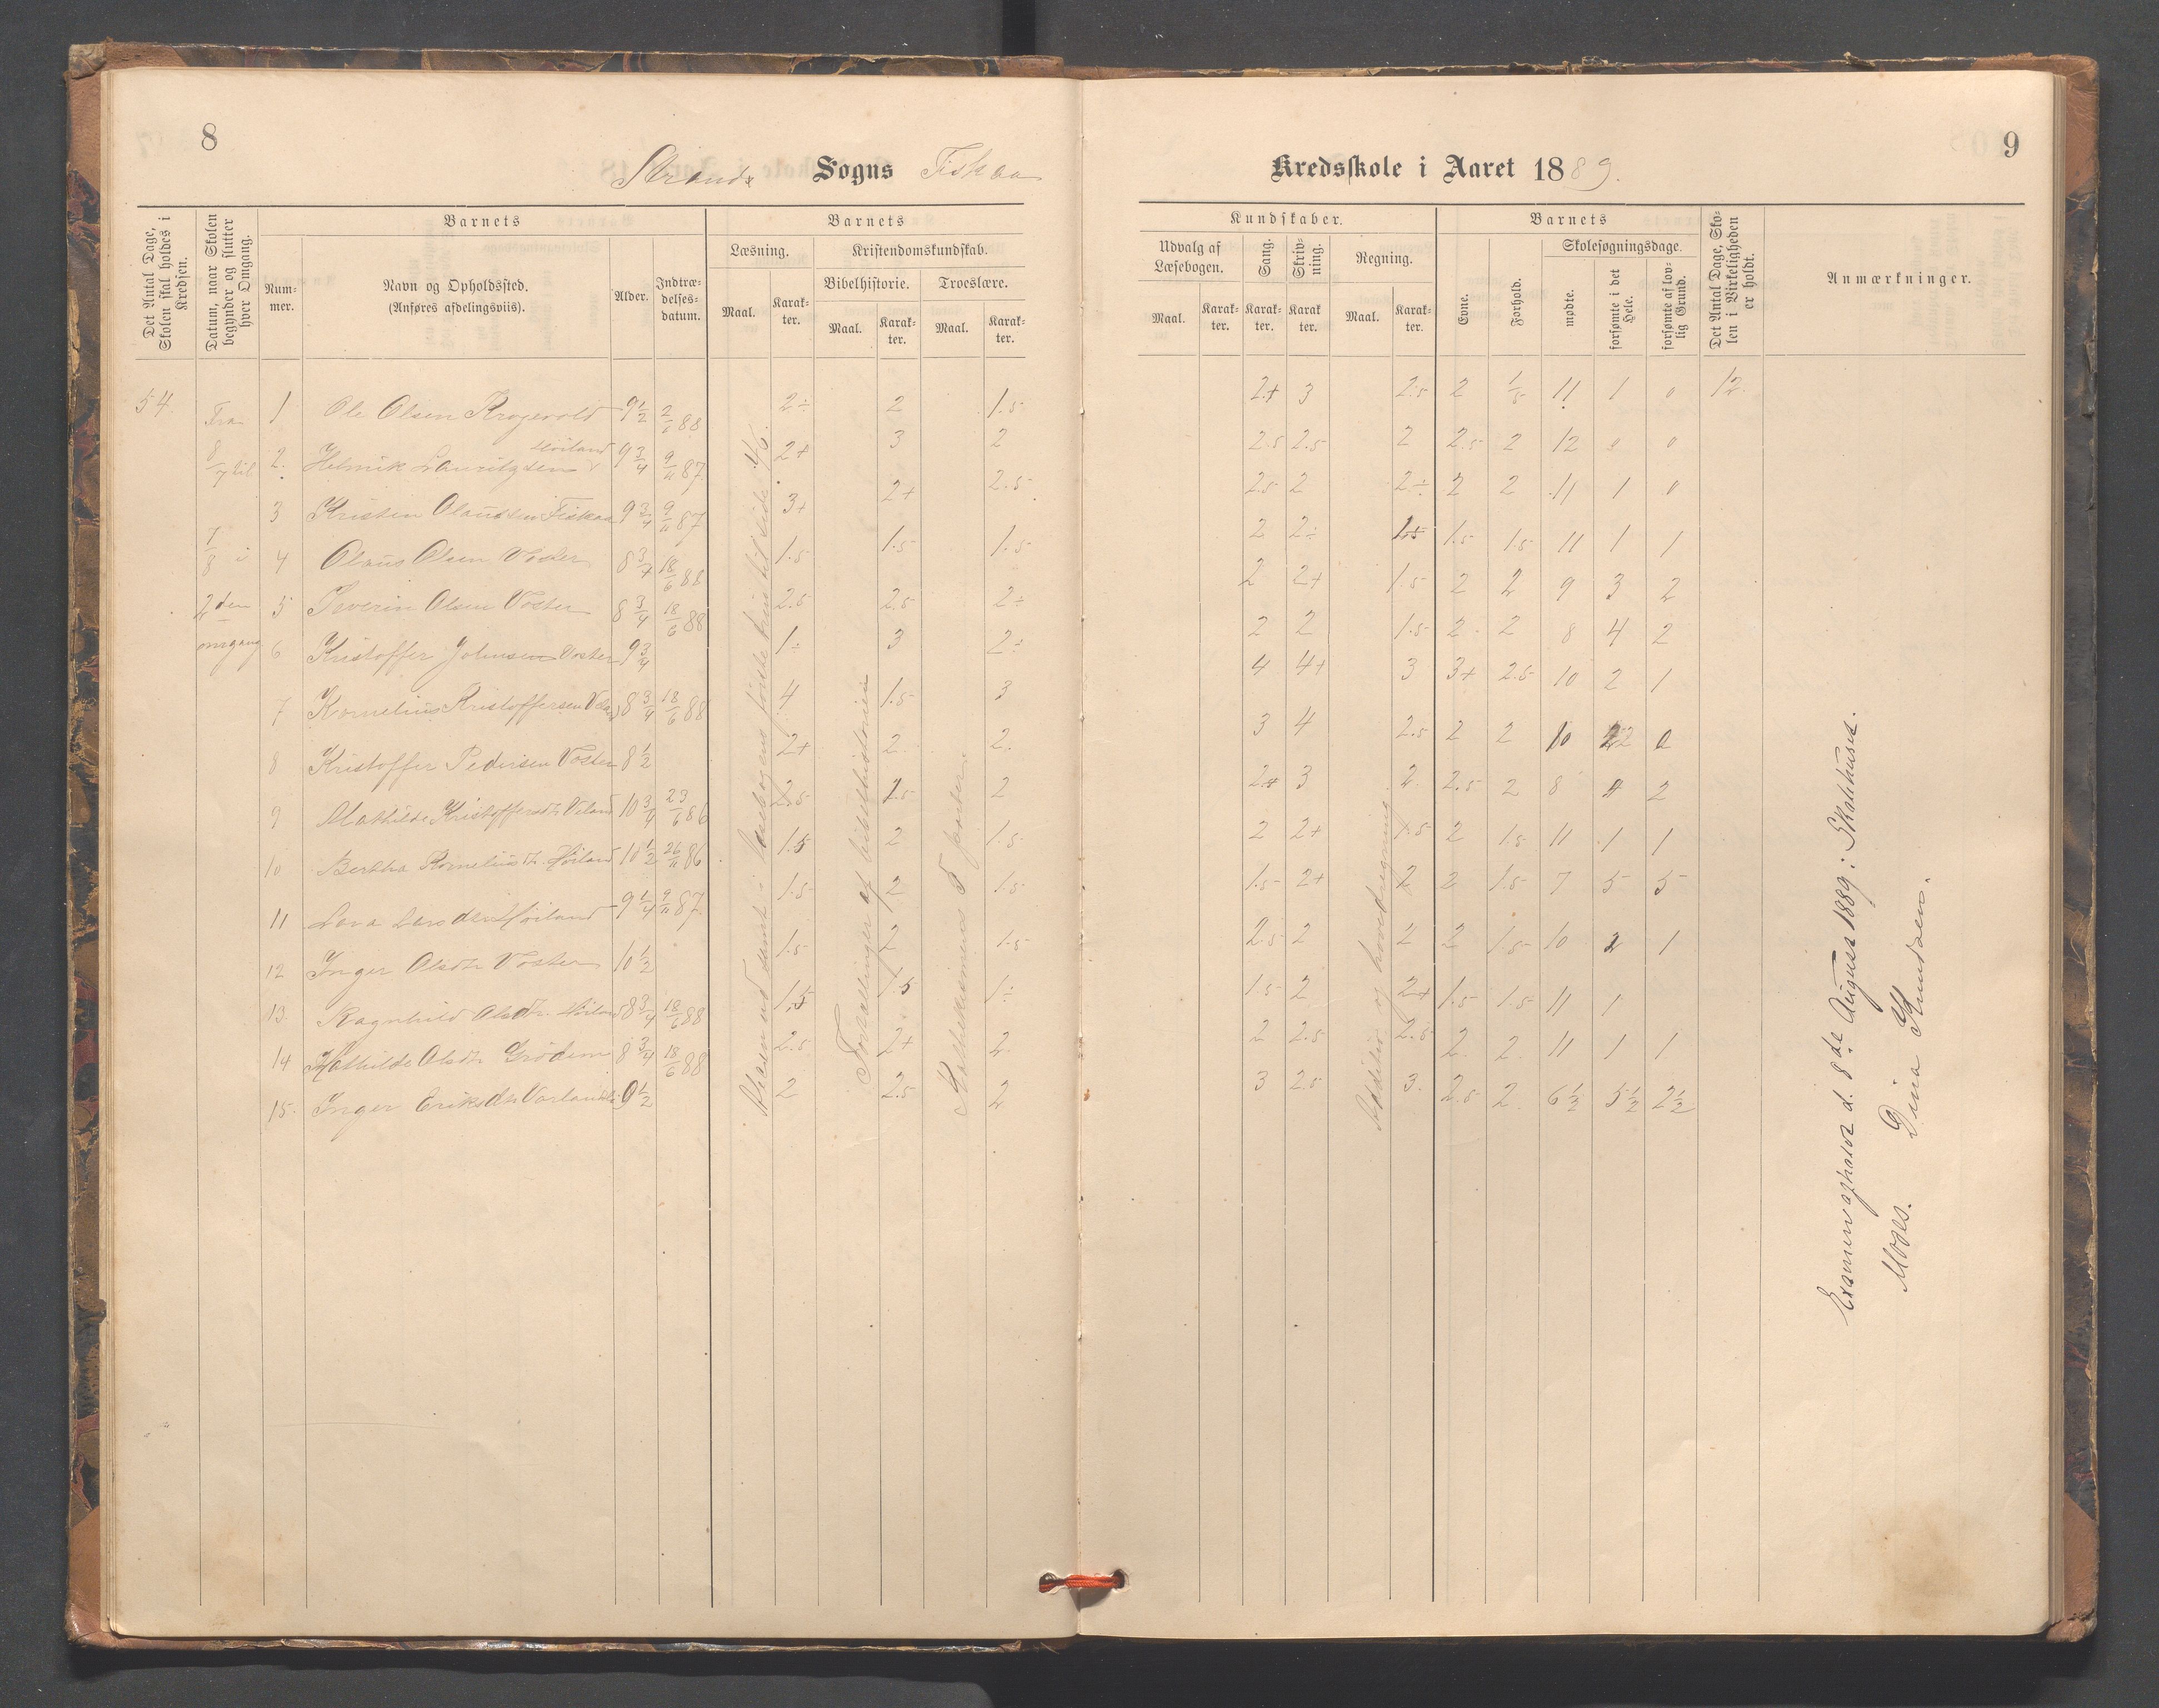 8
9
Strands Sogns Fiskaa Kredsskole i Aaret 1889.
Det Antal Dage, Skolen skal holdes i Kredsen.
Datum, naar Skolen begynder og slutter hver Omgang.
Barnets
Nummer.
Navn og Opholdssted.
(Anføres afdelingsviis).
Alder.
Indtrædelsesdatum.
Barnets
Læsning.
Maal. Karakter.
Kristendomskundskab.
Bibelhistorie. Troeslære.
Maal. Karakter. Maal. Karakter.
Kundskaber.
Udvalg af Læsebogen.
Maal. Karakter.
Sang. Karakter.
Skrivning. Karakter
Regning.
Maal. Karakter.
Barnets
Evne. Forhold.
Skolesøgningsdage.
mødte. forsømte i det Hele. forsømte af lovlig Grund.
Det Antal Dage, Skolen i Virkeligheden er holdt.
Anmærkninger.
54
Fra 8/7 til
7/8 i
2den
omgang
1 Ole Olsen 9 1/2 2/6 88 2÷ 2 1.5 2+ 3 2.5 2 11 1 0 12.
2. Helmik Lauritzsen Høiland 9 3/4 9/11 87. 2+ 3 2 2.5 2.5 2 2.5 2 12 0 0
3 Kristen Olausen Fiskaa 9 3/4 9/11 87 3+ 2+ 2.5 2.5 2 2÷ 2 2 11 1 0
4 Olaus Olsen Voster 8 3/4 18/6 88 1.5 1.5 1.5 2 2÷ 1.5 1.5 11 1 1
5 Severin Olsen Voster 8 3/4 18/6 88 2.5 2.5 2÷ 2 2+ 1.5 2 2 9 3 2
6 Kristoffer Johnsen Voster 9 3/4 1÷ 3 2÷ 2 2 1.5 2 2 8 4 2
7 Kornelius Kristoffersen 8 3/4 18/6 88 4 1.5 3 4 4+ 3 3+ 2.5 10 2 1
8 Kristoffer Pedersen Voster 8 1/2 2+ 2. 2. 3 4 2.5 2 2 10 2 0
9 Mathilde Kristoffersdtr Veland 10 3/4 23/6 86 2.5 2.5 2 2+ 3 2. 2.5 2 8 4 2
10 Bertha Korneliusdtr. Høiland 10 1/2 26/11 86 1.5 2 1.5 2 2+ 1.5 2 1.5 11 1 1
11 Lava Larsdtr Høiland 9 1/4 9/11 87. 1.5 2 1.5 1.5 2+ 2 2 1.5 7 5 5
12 Inger Olsdtr Voster 10 1/2 1.5 2 1.5 2.5 2 2 2 1.5 10 2 1
13. Ragnhild Olsdtr. Høiland 8 3/4 18/6 88 1.5 1.5 1÷ 1.5 2 2+ 1.5 1.5 11 1
14 Mathilde Olsdtr Grødem 8 3/4 18/6 88 2.5 2+ 2. 2 2.5 2.5 2. 2. 11 1 1
15. Inger Eriksdtr 9 1/2 2 2.5 2 3 2.5 3. 2.5 2. 6 1/2 5 1/2 2 1/2
læsebogens første
Fortællinger af bibelhistorien
Katekismens 5 parter.
Addition og hovedregning.
Examen afholdt d. 8de August 1889 i Skolehuset.
Moses. Dina Knudsen.